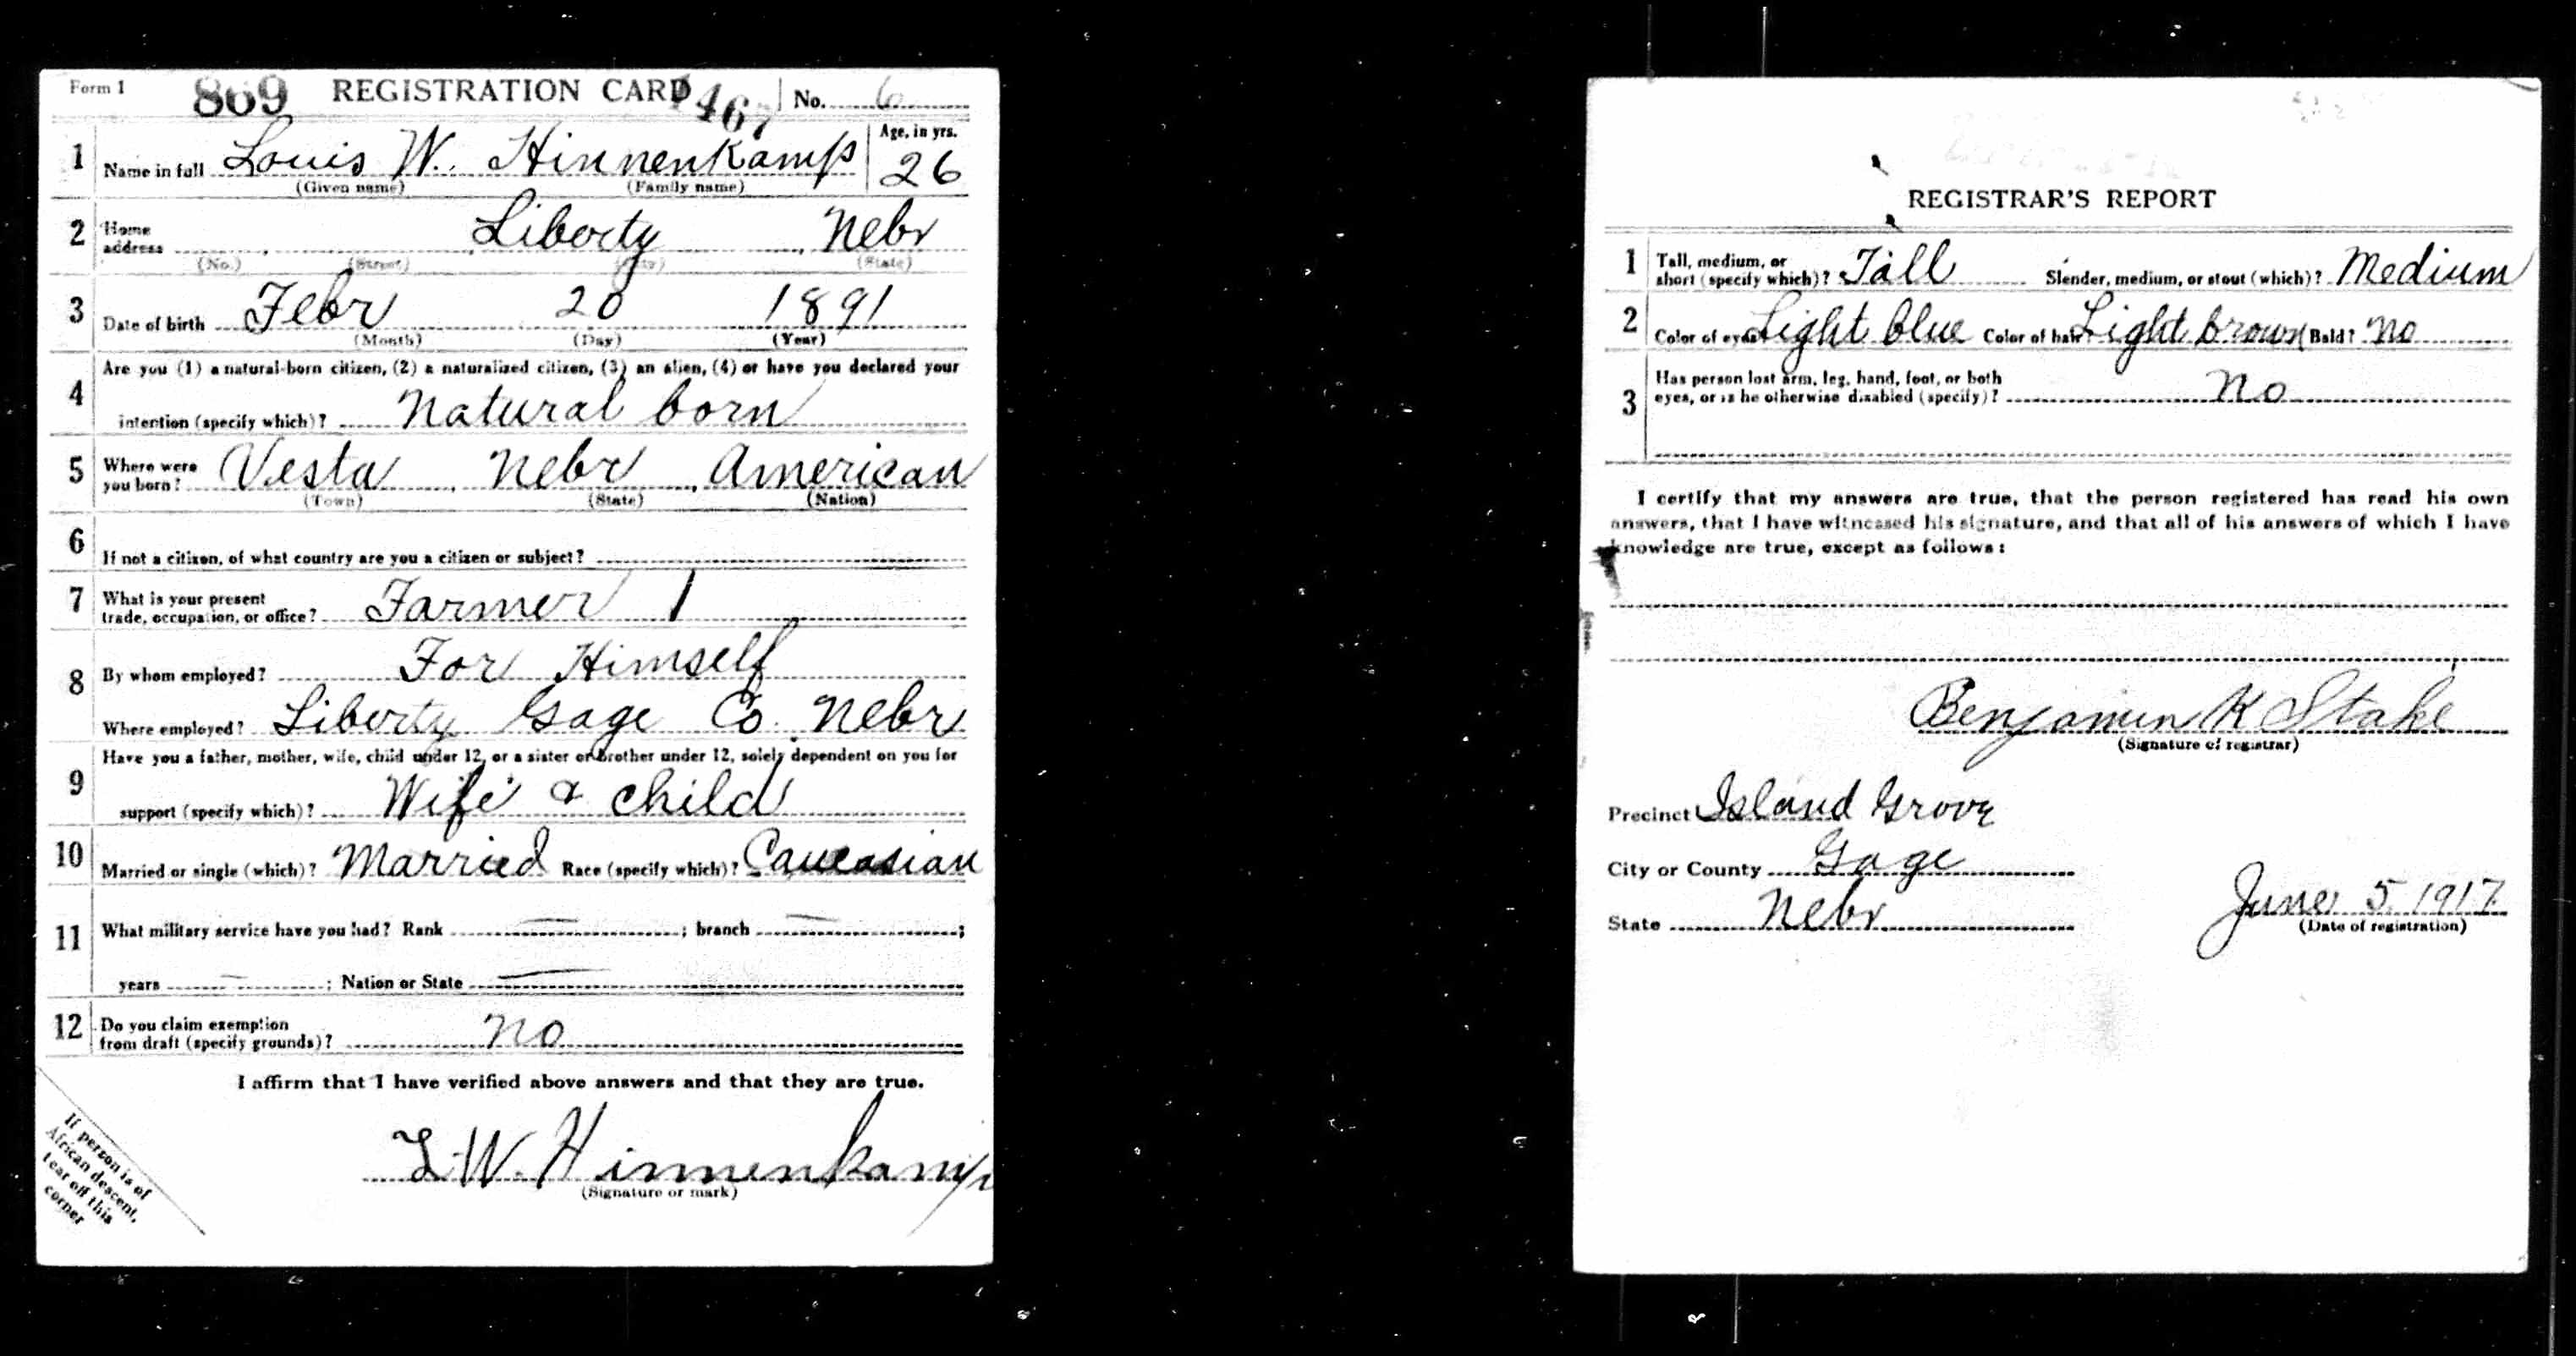 Form 1 869 REGISTRATION CARD 467 No. 6
1 Name in full Louis W. Hinnenkamp Age, in yrs. 26
(Given name) (Family name)
2 Home address Liberty Nebr
(No.) (Street) (City) (State)
3 Date of birth Febr 20 1891
(Month) (Day) (Year)
4 Are you (1) a natural-born citizen, (2) a naturalized citizen, (3) an alien, (4) or have you declared your
intention (specify which)? Natural born
5 Where were you born? Vesta Nebr American
(Town) (State) (Nation)
6 If not a citizen, of what country are you a citizen or subject?
7 What is your present trade, occupation, or office? Farmer 1
8 By whom employed? For Himself
Where employed? Liberty Gage Co. Nebr
9 Have you a father, mother, wife, child under 12, or a sister or brother under 12, solely dependent on you for
support (specify which)? Wife & child
10 Married or single (which)? Married Race (specify which)? Caucasian
11 What military service have you had? Rank — ; branch — ;
years — ; Nation or State —
12 Do you claim exemption from draft (specify grounds)? No
I affirm that I have verified above answers and that they are true.
L. W. Hinnenkamp
(Signature or mark)
If person is of
African descent,
tear off this
corner
REGISTRAR'S REPORT
1 Tall, medium, or short (specify which)? Tall Slender, medium, or stout (which)? Medium
2 Color of eyes? Light blue Color of hair? Light brown Bald? No
3 Has person lost arm, leg, hand, foot, or both
eyes, or is he otherwise disabled (specify)? No
I certify that my answers are true, that the person registered has read his own
answers, that I have witnessed his signature, and that all of his answers of which I have
knowledge are true, except as follows:
Benjamin K Stake
(Signature of registrar)
Precinct Island Grove
City or County Gage
State Nebr
June 5 1917
(Date of registration)